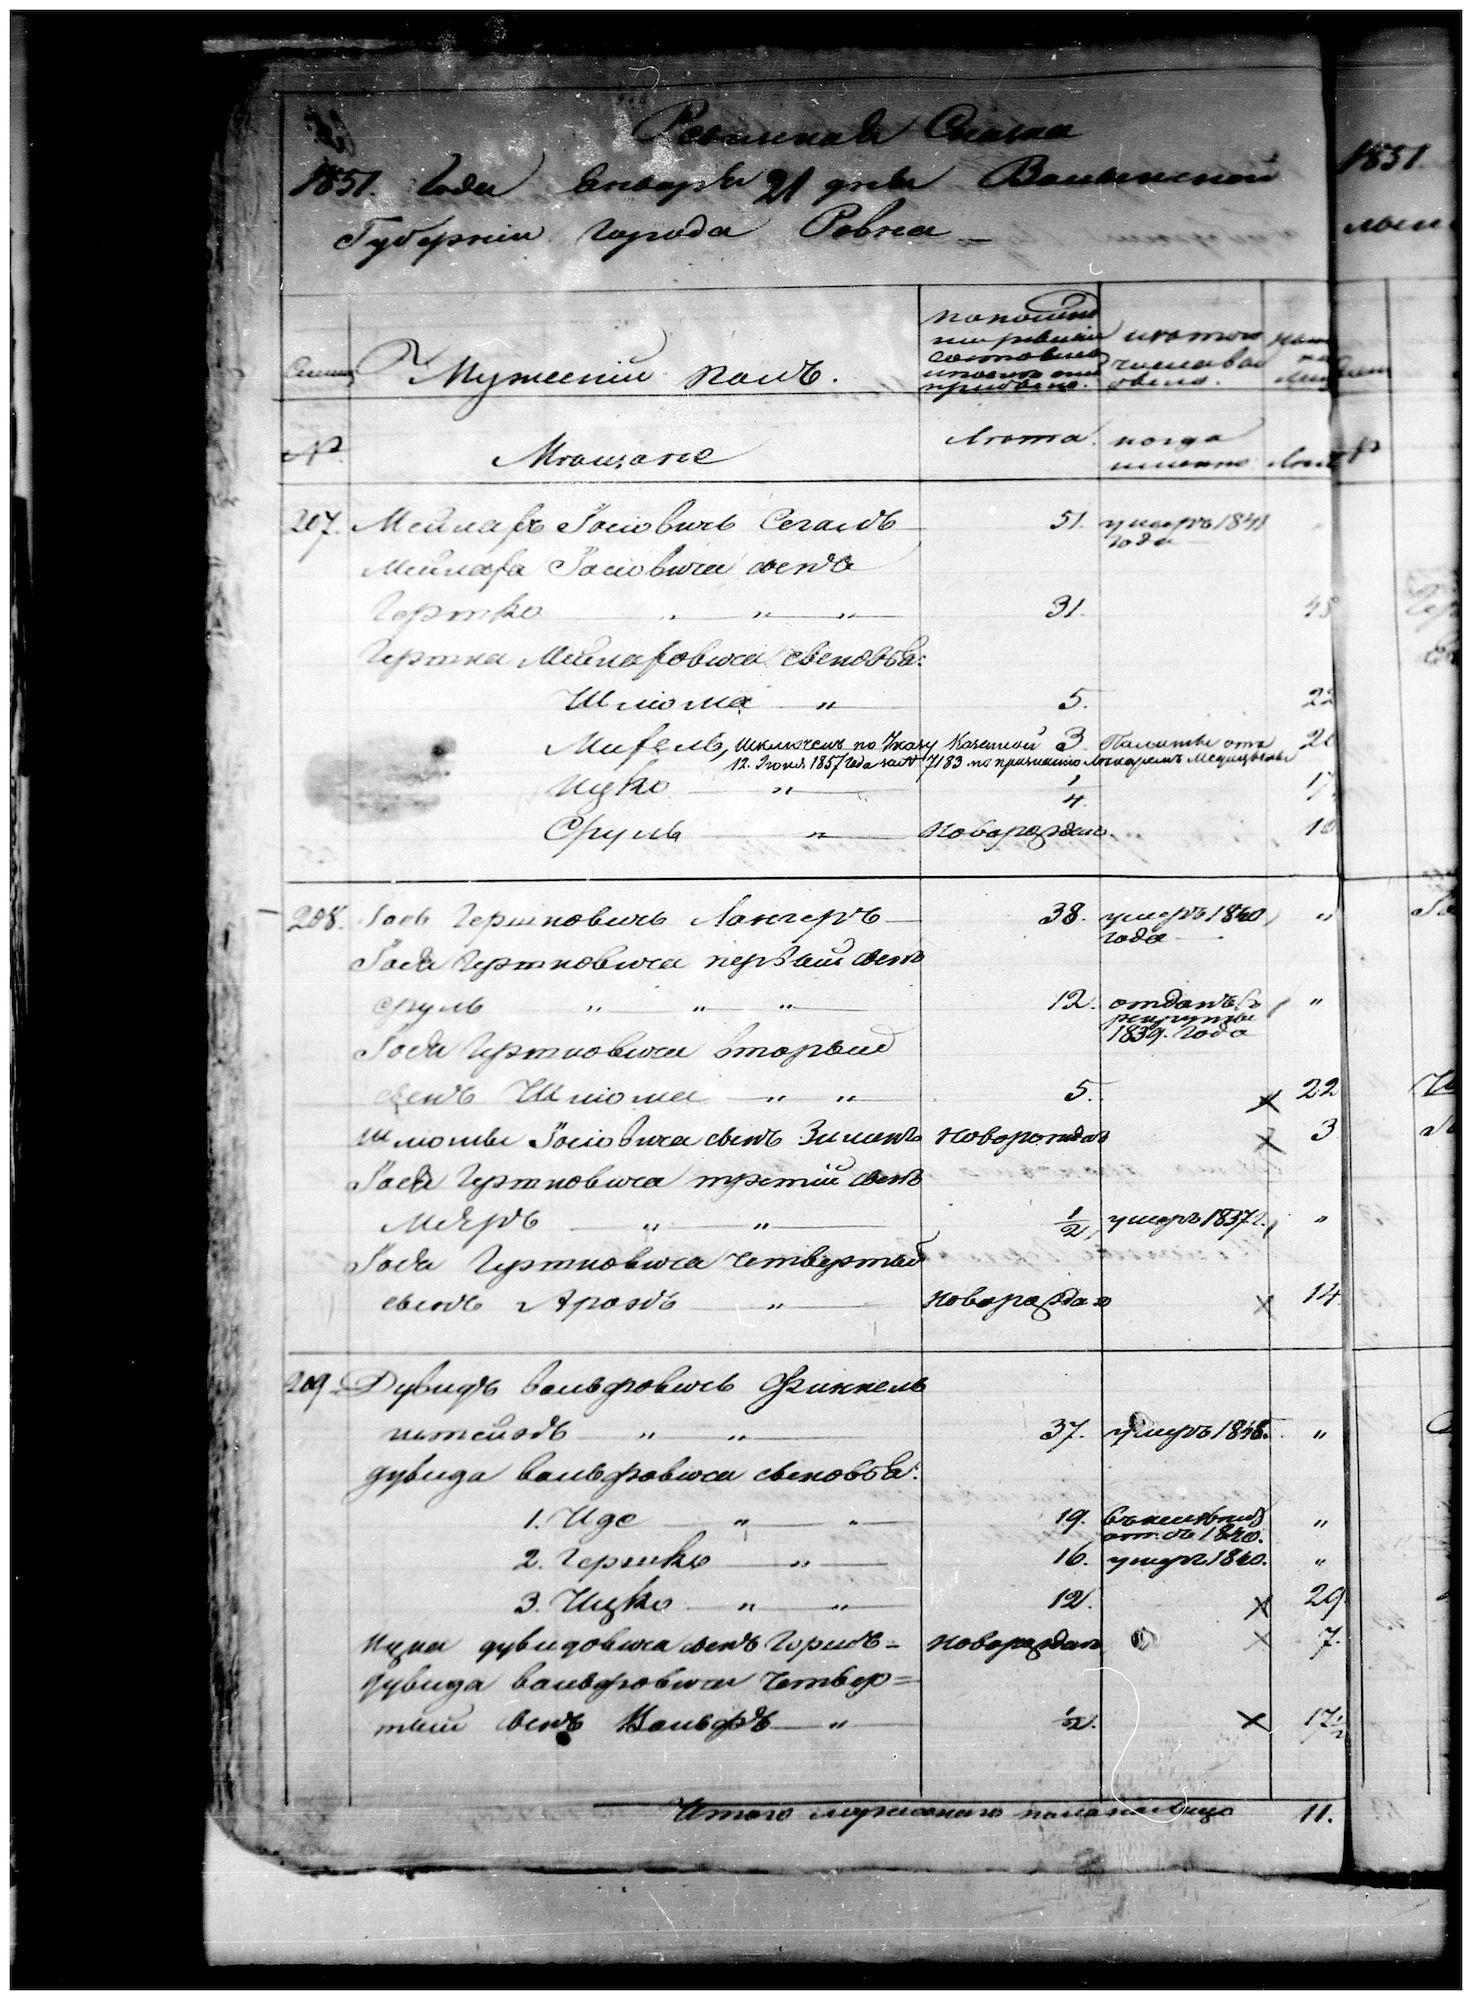 Ревизская Сказка
1851. Года Января 21 дня Волынской
Губерніи Города Ровна
1851
Мужескій полъ.
№
Мещане
Лета. когда
именно Лета
207. Мейлахъ Іосіовичъ Сегалъ 51. умеръ 1841
года
Мейлаха Іосіовича сынъ
Гершко " " " 31. 45
Гершка Мейлаховича сыновья:
Шліома " 5. 22
Михель, исключенъ по Указу Казенной 3. Палаты отъ 20
12. Іюня 1857 года за № 7183 по признанію Лекаремъ
Ицко " 1/4 17
Сруль " новорожден. 10
208. Іось Гершковичъ Лангеръ 38. умеръ 1840 "
года
Іося Гершковича первый сынъ
Сруль " " " 12. отданъ въ "
рекруты
1839. года
Іося Гершковича вторый
сынъ Шліома " " 5. х 22
Шліомы Іосіовича сынъ Зиманъ новорожден х 3
Іося Гершковича третій сынъ
Меэръ " " 1/2, умеръ 1837 г. "
Іося Гершковича четвертый
сынъ Аронъ " новорожден х 14
209. Дувидъ Вольфовичъ Финкель
штейнъ " " 37. умеръ 1848. "
Дувида Вольфовича сыновья:
1. Иде " " 19. "
1840.
2. Гершко " 16. умеръ 1840. "
3. Ицко " " 12. х 29.
Ицка Дувидовича сынъ Гершъ = новорожден х 7.
Дувида Вольфовича четвер=
тый сынъ Вольфъ " 1/2. х 17 1/2
Итого мужескаго пола налицо 11.